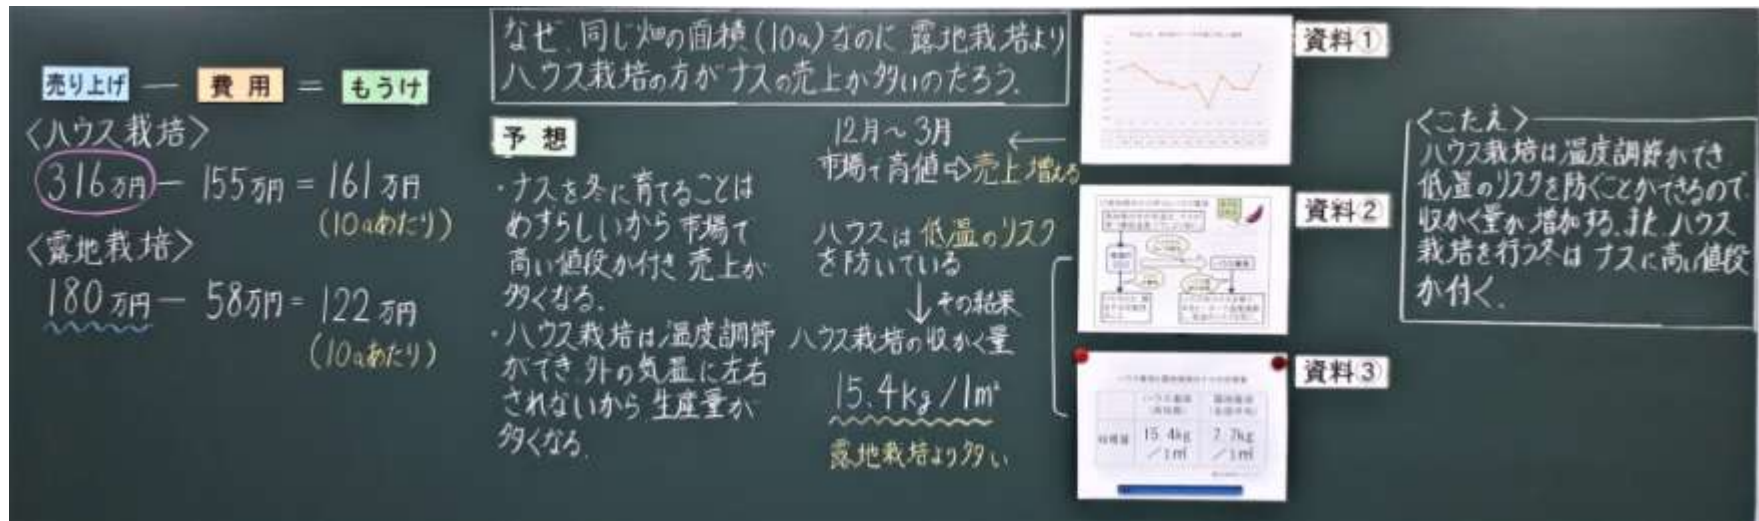 売り上げ － 費用 ＝ もうけ
〈ハウス栽培〉
316万円－155万円＝161万円
(10aあたり)
〈露地栽培〉
180万円－58万円＝122万円
(10aあたり)
なぜ、同じ畑の面積(10a)なのに露地栽培より
ハウス栽培の方がナスの売上が多いのだろう。
予想
・ナスを冬に育てることは
めずらしいから市場で
高い値段が付き売上が
多くなる。
・ハウス栽培は温度調節
ができ外の気温に左右
されないから生産量が
多くなる。
12月～3月 ←
市場で高値⇨売上増える
ハウスは低温のリスク
を防いでいる
↓その結果
ハウス栽培の収かく量
15.4kg/1m²
露地栽培より多い
資料①
資料②
資料③
ハウス栽培
露地栽培
収穫量
15.4kg
／1㎡
7.7kg
／1㎡
〈こたえ〉
ハウス栽培は温度調節ができ
低温のリスクを防ぐことができるので
収かく量が増加する。また、ハウス
栽培を行う冬はナスに高い値段
が付く。